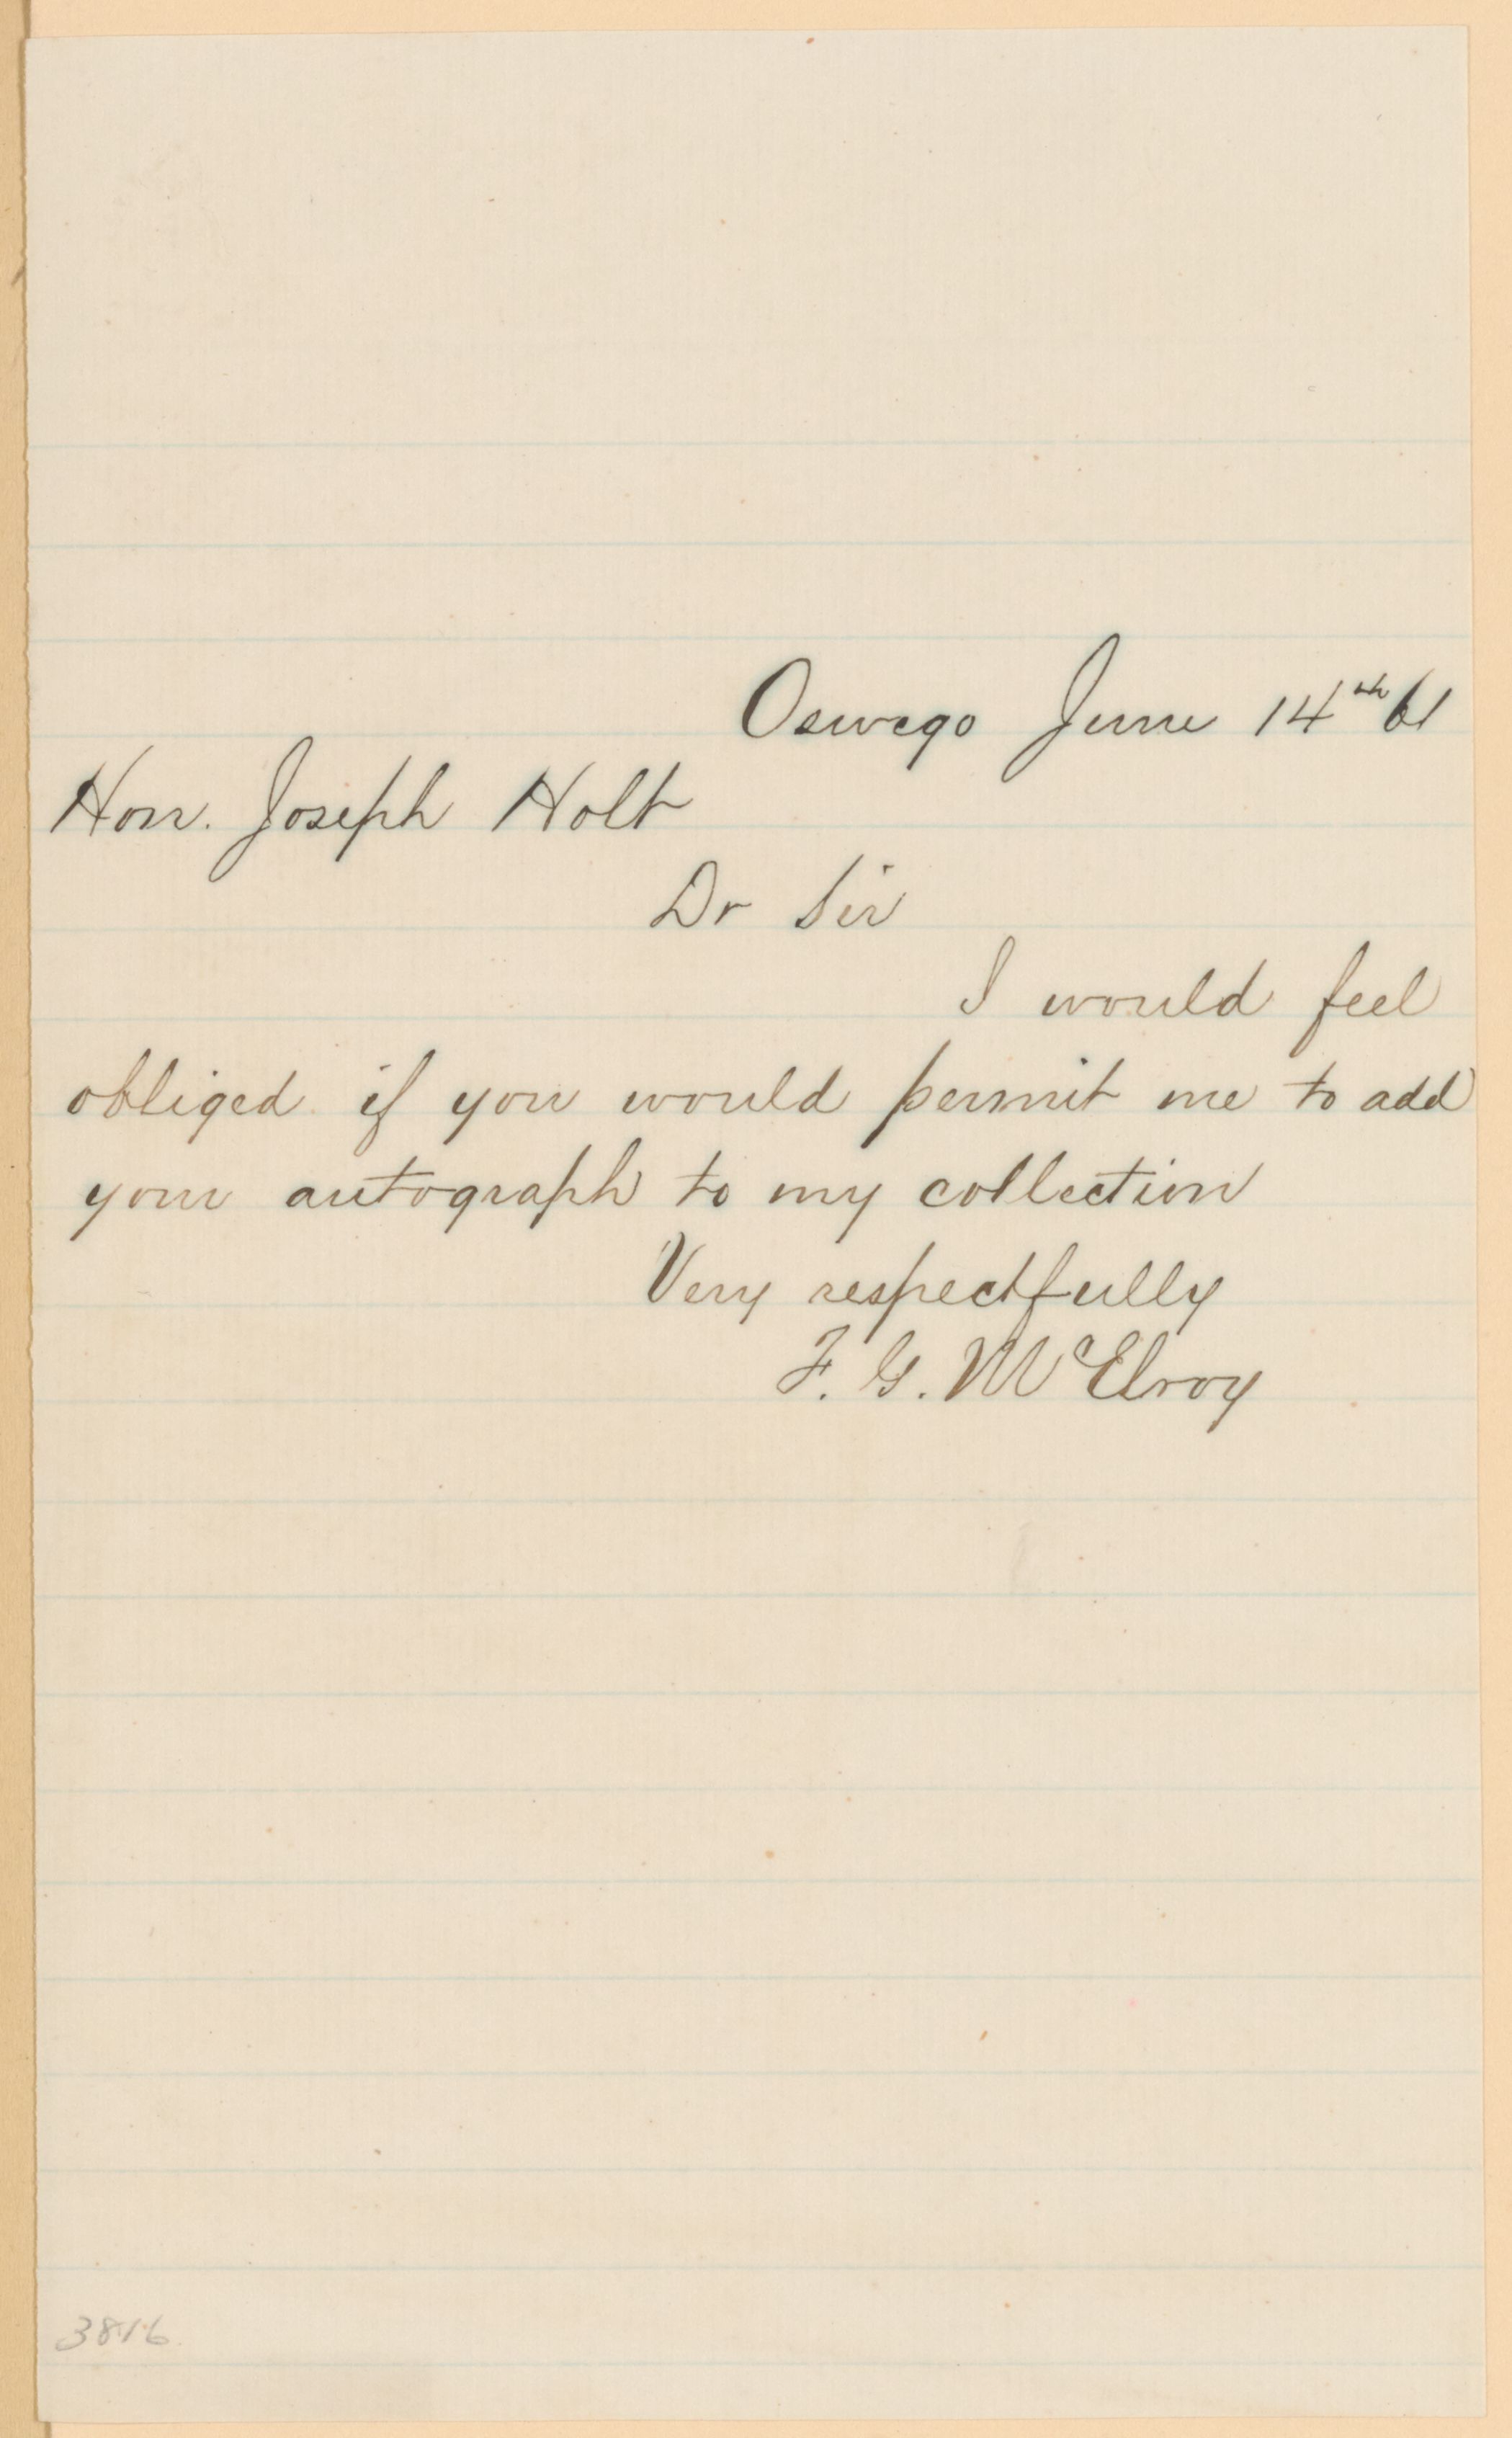 Oswego June 14th 61
Hon. Joseph Holt
Dr Sir
I would feel
obliged if you would permit me to add
your autograph to my collection
Very respectfully
F. G. McElroy
3816